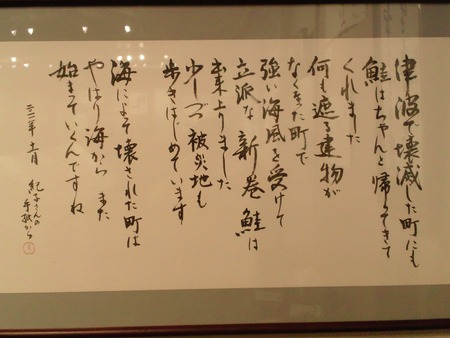 津波で壊滅した町にも
鮭はちゃんと帰ってきて
くれました
何も遮る建物が
なくなった町で
強い海風を受けて
立派な新巻鮭は
出来上りました
少しづつ被災地も
歩きはじめています
海によって壊された町は
やはり海から また
始まっていくんですね
二〇一一年 十一月
紀子さんの
手紙から